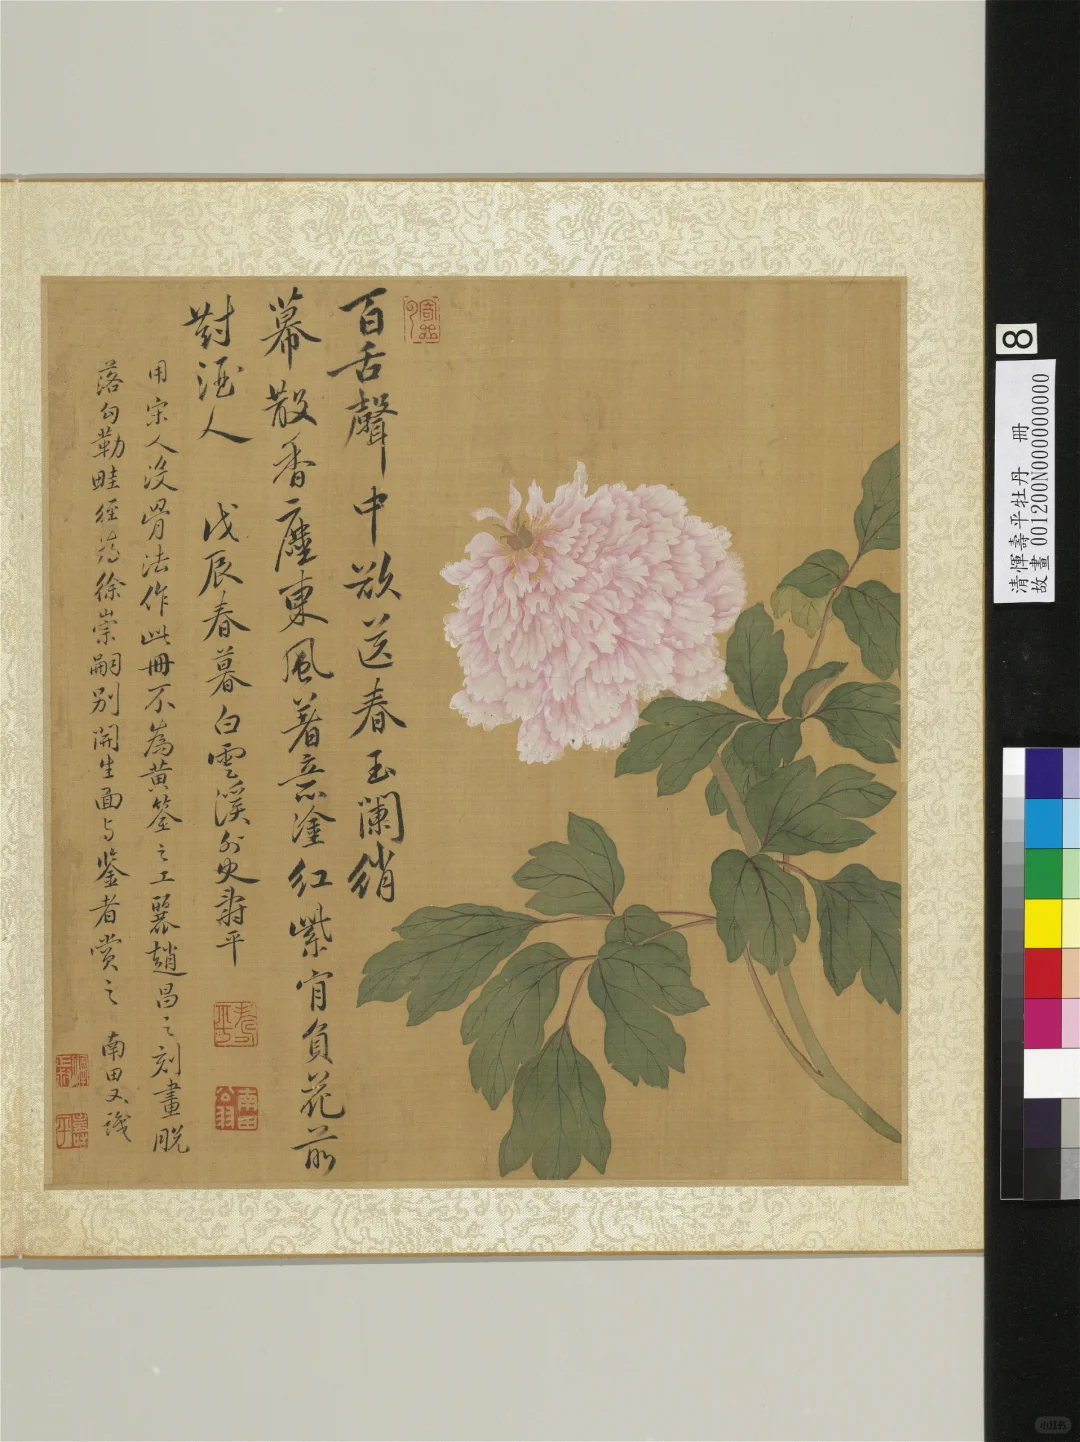 百舌聲中欲送春玉闌綃
幕散香塵東風著意塗紅紫肯負花前
對酒人 戊辰春暮白雲溪外史壽平
用宋人沒骨法作此冊不為黃筌之工麗趙昌之刻畫脫
落勾勒畦徑為徐崇嗣別開生面與鑒者賞之 南田又識
壽平
南田
公羽
8
清惲壽平牡丹 冊
故畫001200N000000000
小红书